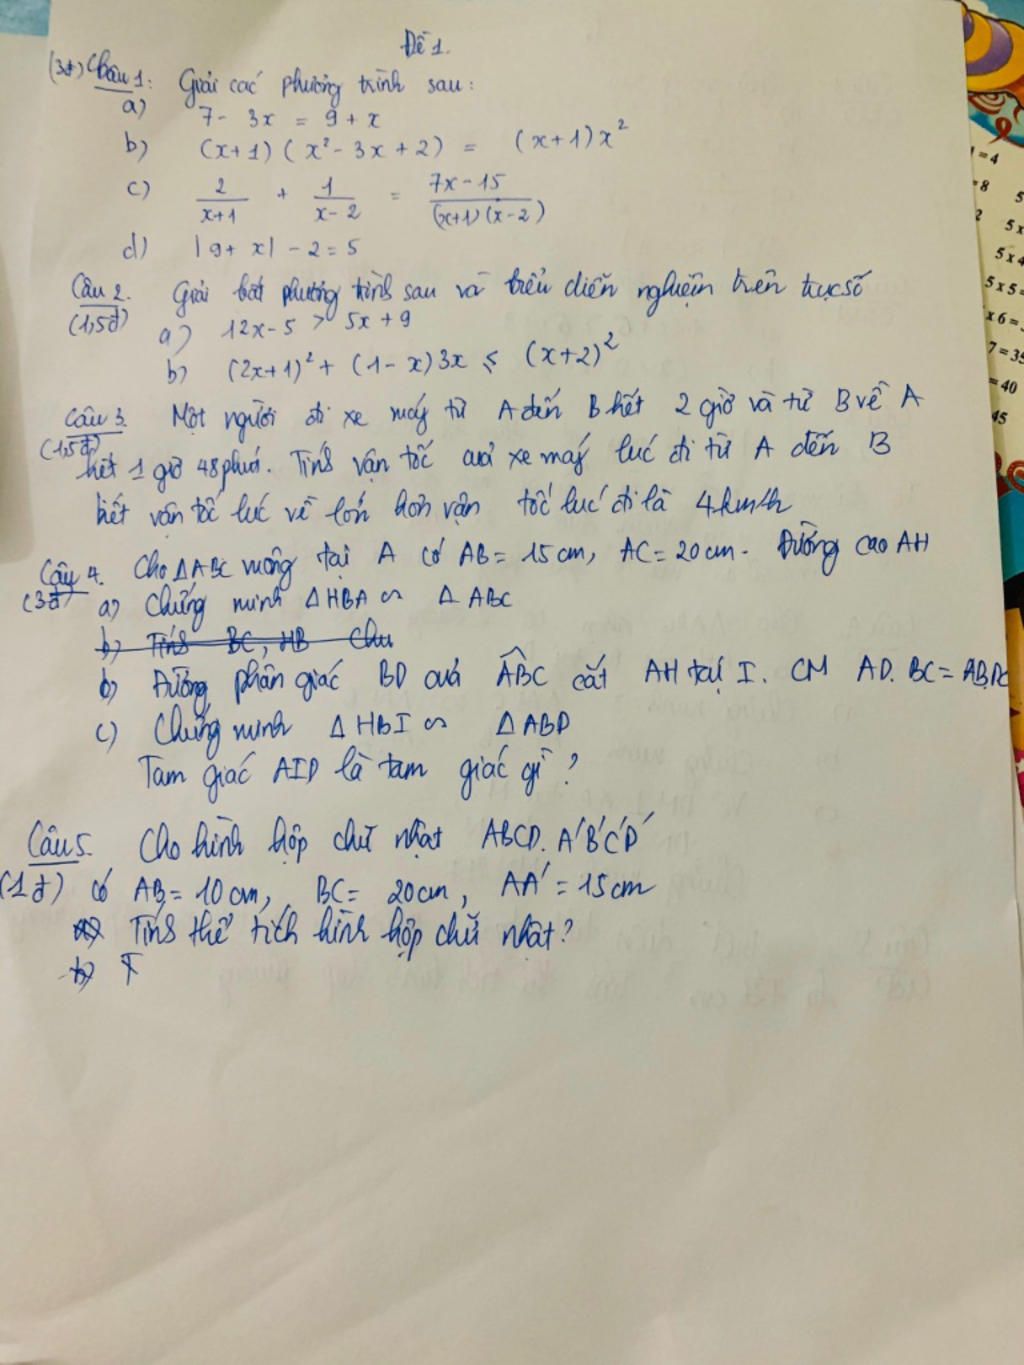 Đề 1.
(3đ) Câu 1: Giải các phương trình sau:
a) 7 - 3x = 9 + x
b) (x+1)(x² - 3x + 2) = (x+1)x²
c) 2/(x+1) + 1/(x-2) = (7x-15)/((x+1)(x-2))
d) |9+x| - 2 = 5
Câu 2. Giải bất phương trình sau và biểu diễn nghiệm trên trục số
(1,5đ) a) 12x - 5 > 5x + 9
b) (2x+1)² + (1-x)3x ≤ (x+2)²
Câu 3. Một người đi xe máy từ A đến B hết 2 giờ và từ B về A
(1,5đ) hết 1 giờ 48 phút. Tính vận tốc của xe máy lúc đi từ A đến B
biết vận tốc lúc về lớn hơn vận tốc lúc đi là 4km/h
Câu 4. Cho ΔABC vuông tại A có AB = 15cm, AC = 20cm. Đường cao AH
(3đ) a) Chứng minh ΔHBA ∽ ΔABC
b) Tính BC, HB Chu
b) Đường phân giác BD của ABC cắt AH tại I. CM AD.BC = AB.DC
c) Chứng minh ΔHBI ∽ ΔABD
Tam giác AID là tam giác gì?
Câu 5. Cho hình hộp chữ nhật ABCD.A'B'C'D'
(1đ) có AB = 10cm, BC = 20cm, AA' = 15cm
a) Tính thể tích hình hộp chữ nhật?
b) T
=4
=8
5
2
5x
5x4
5x5=
x6=3
7=35
=40
45